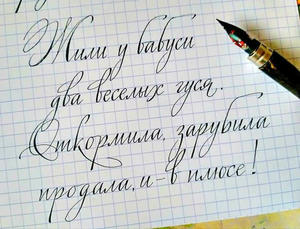 Жили у бабуси
два веселых гуся.
Откормила, зарубила
продала, и - в плюсе!